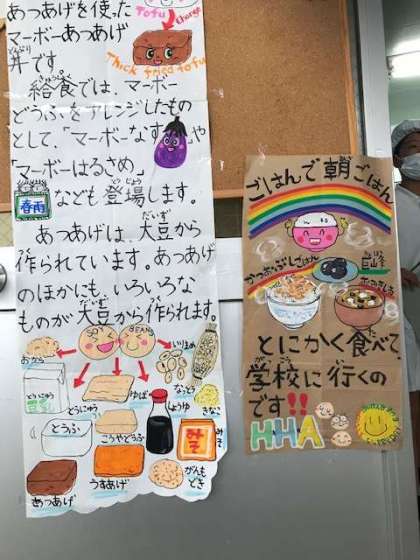 あつあげを使った
Tofu
Change
マーボーあつあげ
丼です。
Thick fried tofu
給食では、マーボー
どうふをアレンジしたもの
として、「マーボーなす」や
「マーボーはるさめ」
春雨
なども登場します。
あつあげは、大豆から
作られています。あつあげ
のほかにも、いろいろな
ものが大豆から作られます。
おから
いりまめ
とうにゅう
豆乳
ゆば
しょうゆ
なっとう
きなこ
とうふ
こうやどうふ
みそ
みそ
あつあげ
うすあげ
がんも
どき
ごはんで朝ごはん
かつおぶしごはん
とにかく食べて、
学校に行くの
です!!
HHA